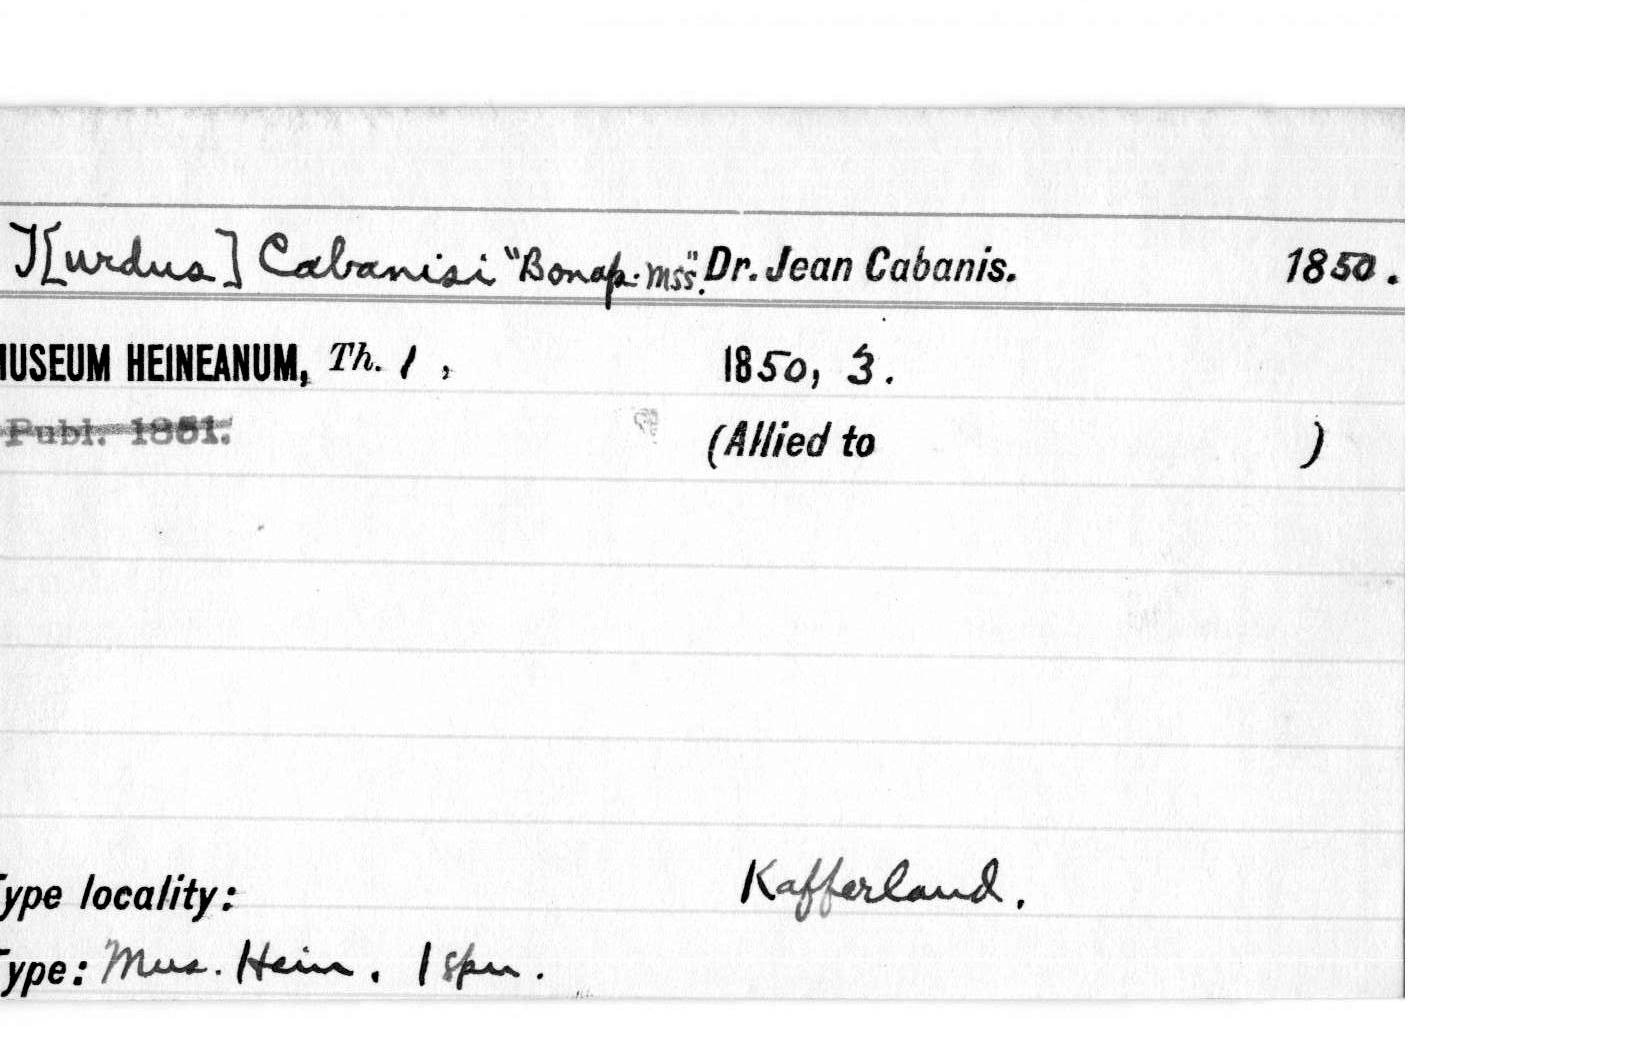 T[urdus] Cabanisi "Bonap. mss". Dr. Jean Cabanis. 1850.
MUSEUM HEINEANUM, Th. 1, 1850, 3.
Publ. 1851. (Allied to )
Type locality: Kafferland.
Type: Mus. Hein. 1 spm.